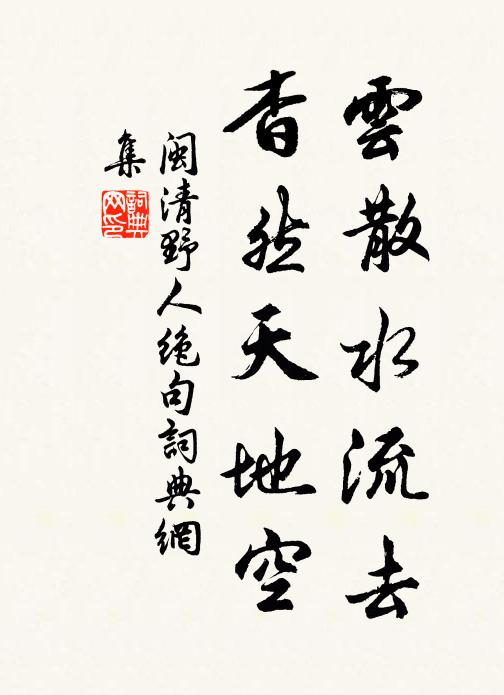 雲散水流去
杳然天地空
闽清野人绝句詞典網
集
詞典
网印